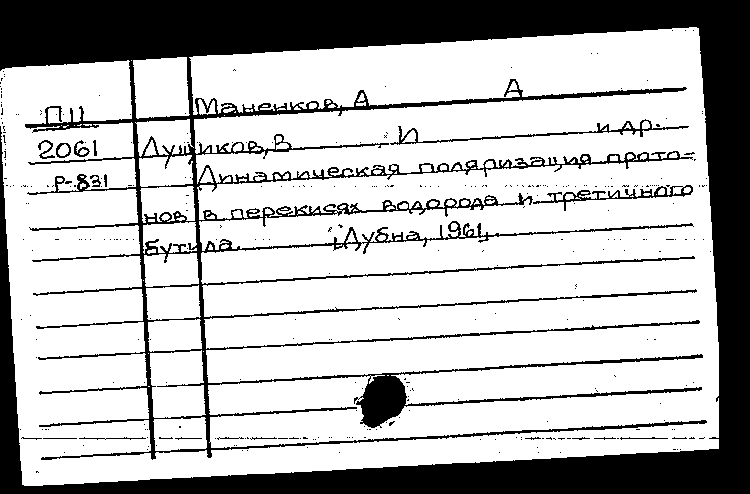 П11 Маненков, А А
2061 Лущиков, В И и др.
Р-831 Динамическая поляризация прото-
нов в перекисях водорода и третичного
бутила. Дубна, 1961.